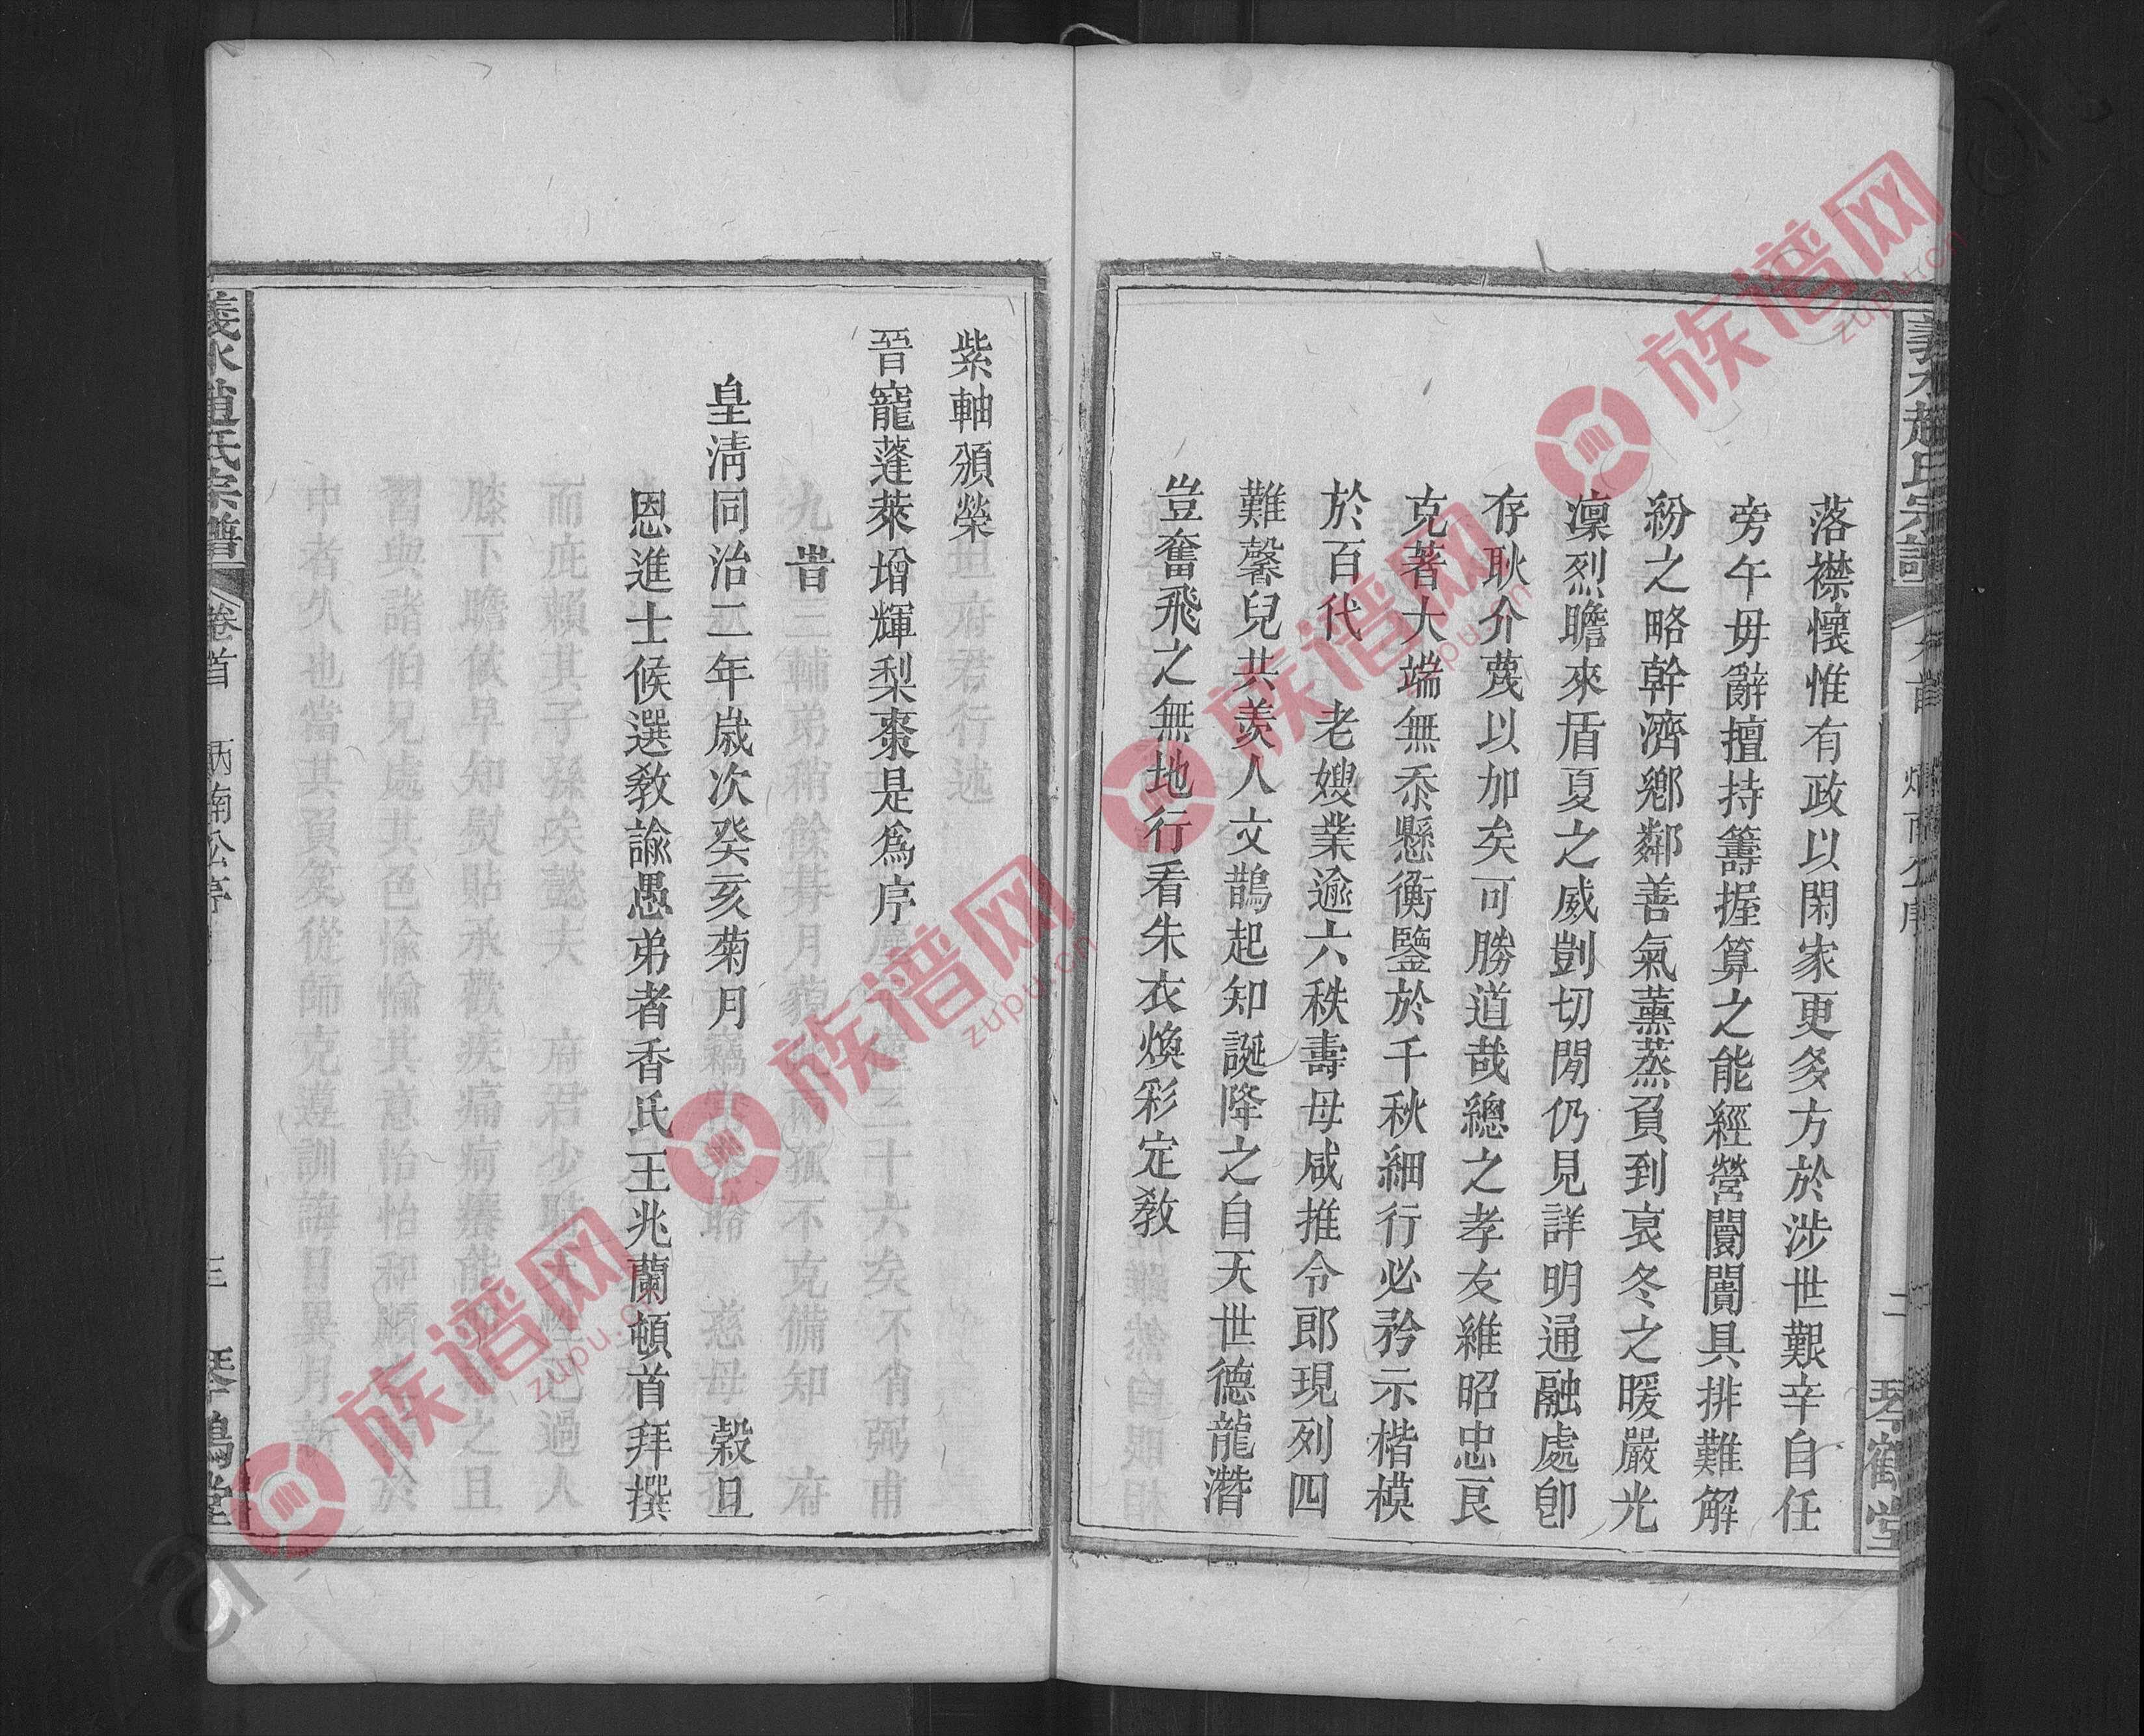 落襟懷惟有政以閑家更多方於涉世艱辛自任
旁午毋辭擅持籌握算之能經營闤闠具排難解
紛之略幹濟鄉鄰善氣薰蒸負到哀冬之暖嚴光
凜烈瞻來盾夏之威剴切閒仍見詳明通融處卽
存耿介蔑以加矣可勝道哉總之孝友維昭忠良
克著大端無忝懸衡鑒於千秋細行必矜示楷模
於百代　老嫂業逾六秩壽母咸推令郎現列四
難馨兒共羨人文鵲起知誕降之自天世德龍潛
豈奮飛之無地行看朱衣煥彩定教
紫軸頒榮
晉寵蓬萊增輝梨棗是爲序
旹
皇清同治二年歲次癸亥菊月　穀旦
恩進士候選教諭愚弟者香氏王兆蘭頓首拜撰
義水趙氏宗譜　卷首　炳南公序　二　琴鶴堂
義水趙氏宗譜　卷首　炳南公序　三　琴鶴堂
族谱网
zupu.cn
族谱网
zupu.cn
族谱网
zupu.cn
族谱网
zupu.cn